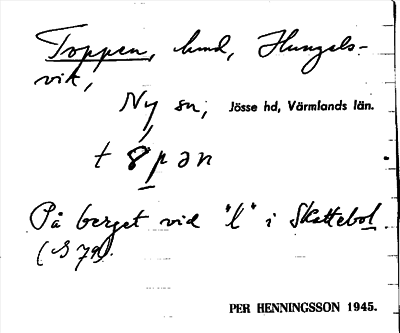 Toppen, hmd, Hungels-
vik,
Ny sn, Jösse hd, Värmlands län.
t 8 p ə n
På berget vid "l" i Skattebol
(S 79).
PER HENNINGSSON 1945.